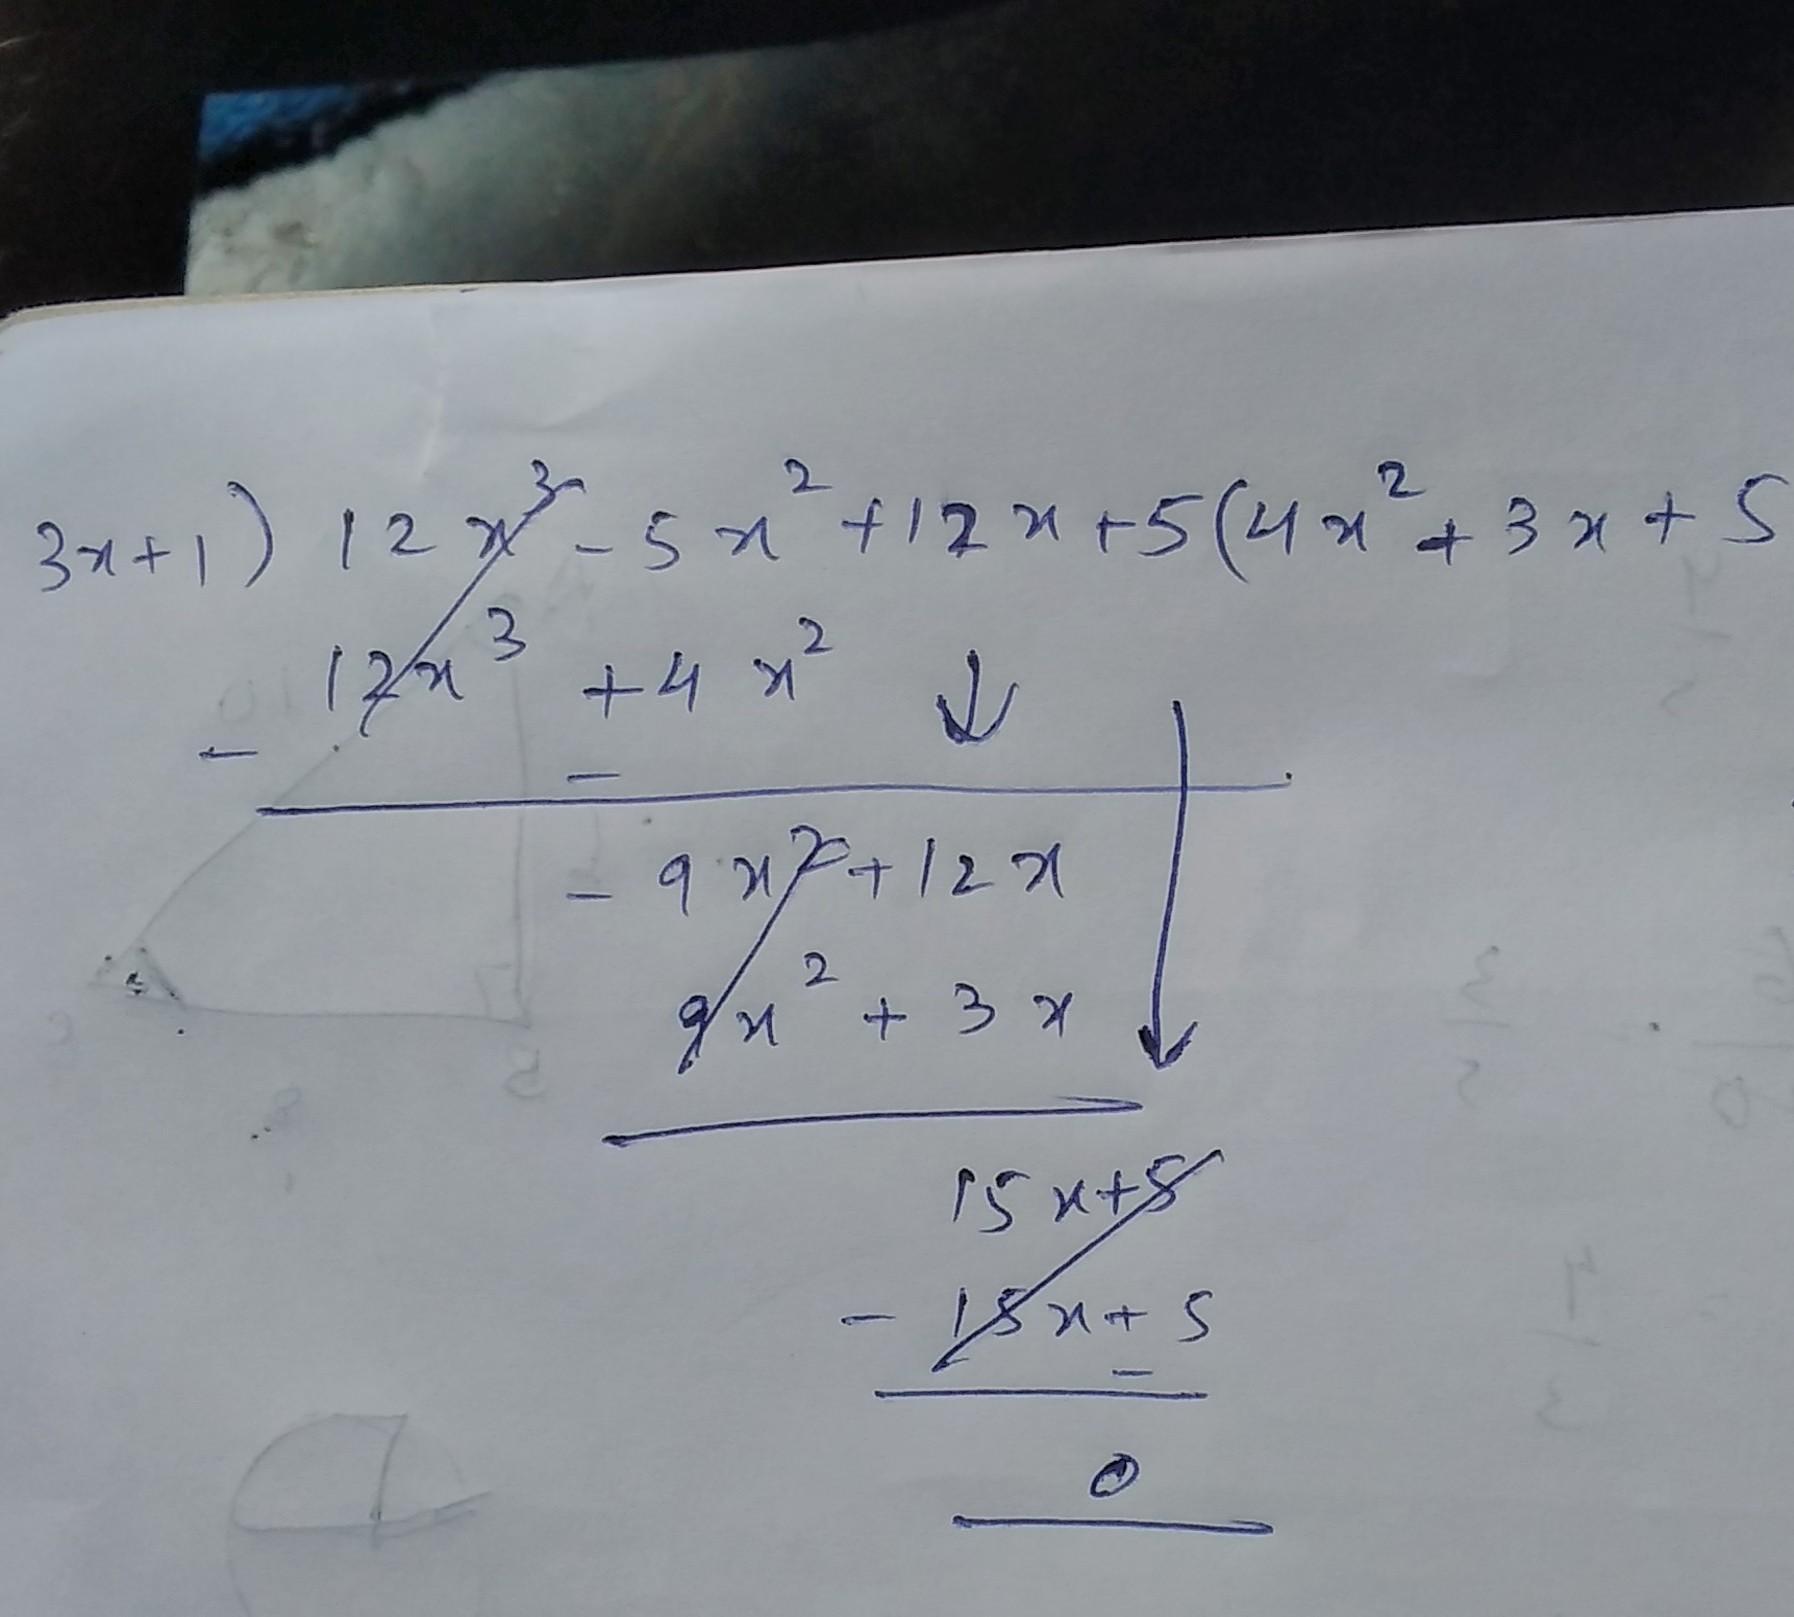 3x+1) 12x³ - 5x² + 12x + 5 (4x² + 3x + 5
12x³ + 4x²
- -
- 9x² + 12x
9x² + 3x
15x + 5
- 15x + 5
-
0